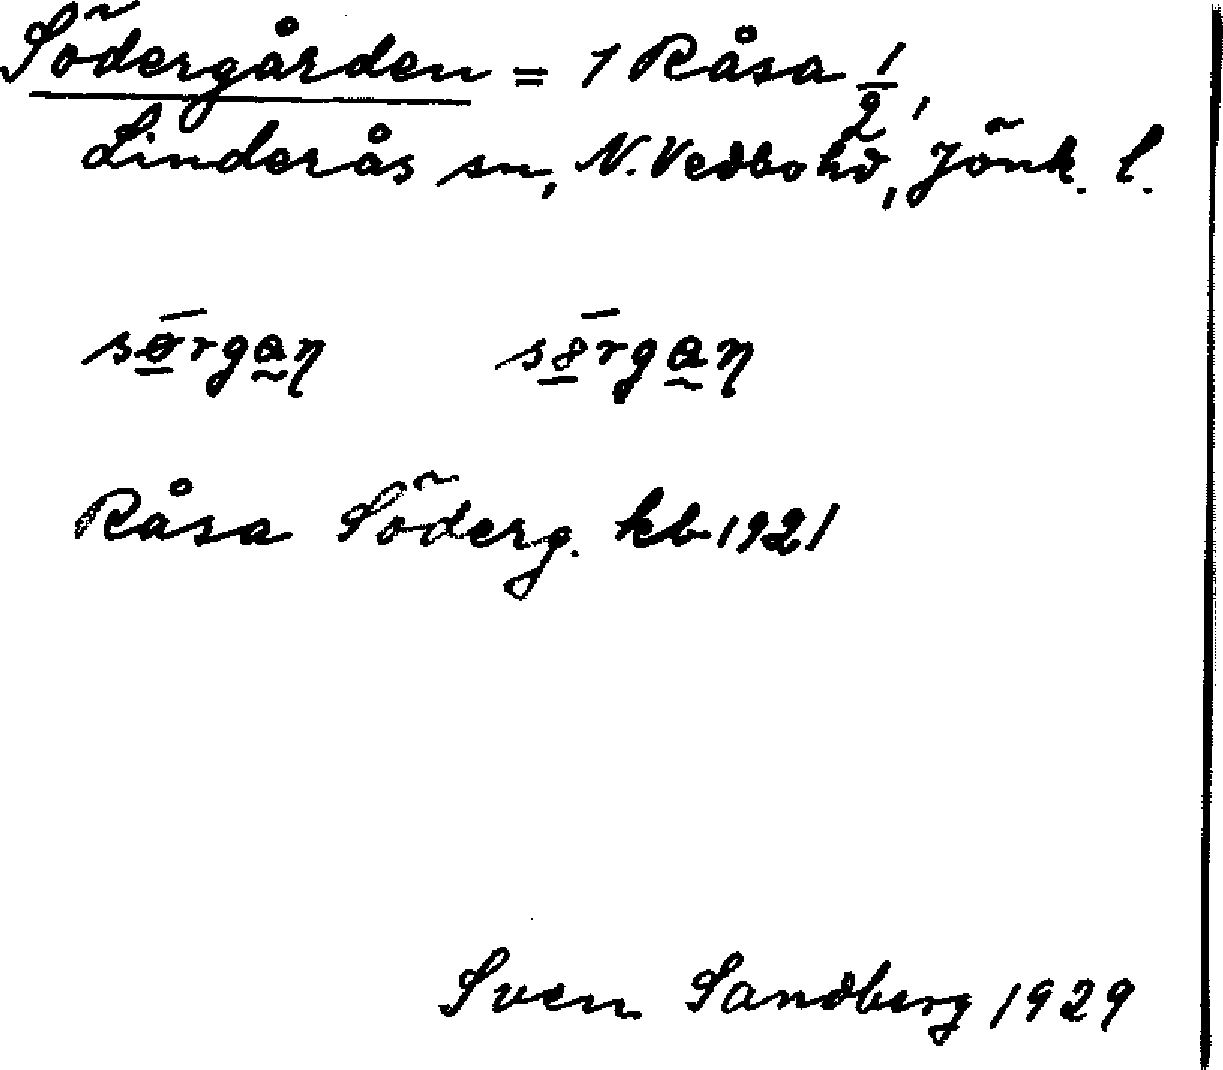 Södergården = 1 Råsa 1/2,
Linderås sn, N. Vedbo hd, Jönk. l.
sø̄rgan̥ s8̄rgan̥
Råsa Söderg. kb 1921
Sven Sandberg 1929